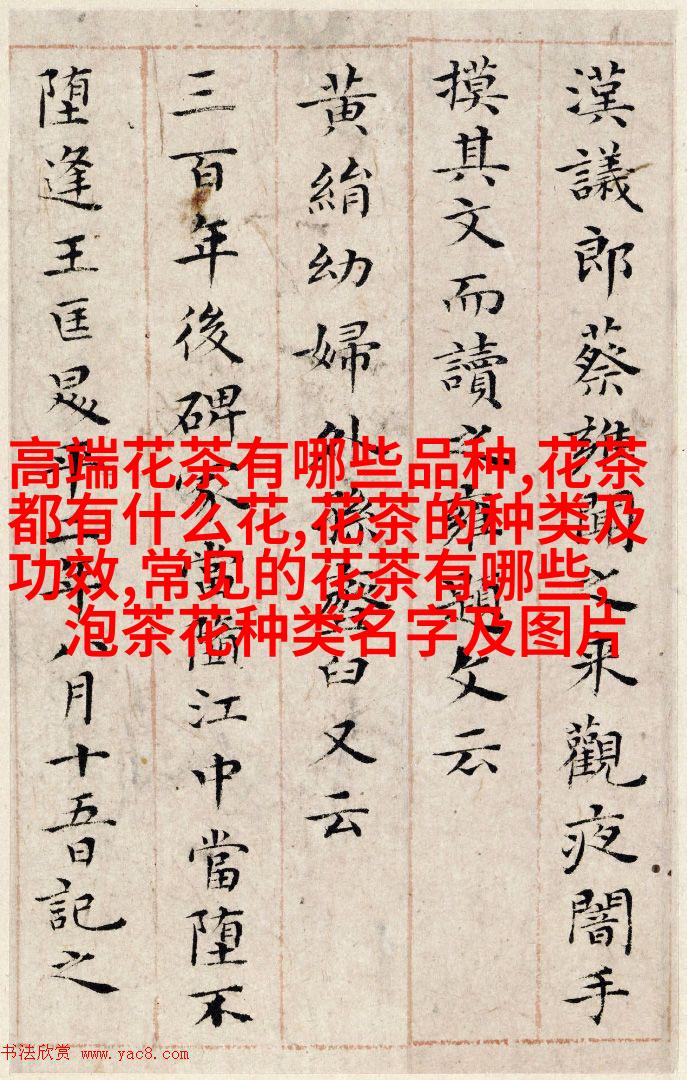 漢議郎蔡聞之来觀夜闇手
摸其文而讀之雍題文云
黄絹幼婦外孫臼又云
三百年後碑冢當堕江中當堕不
堕逢王匡昇平二年八月十五日記之
高端花茶有哪些品种,花茶
都有什么花,花茶的种类及
功效,常见的花茶有哪些,
泡茶花种类名字及图片
书法欣赏 www.yac8.com